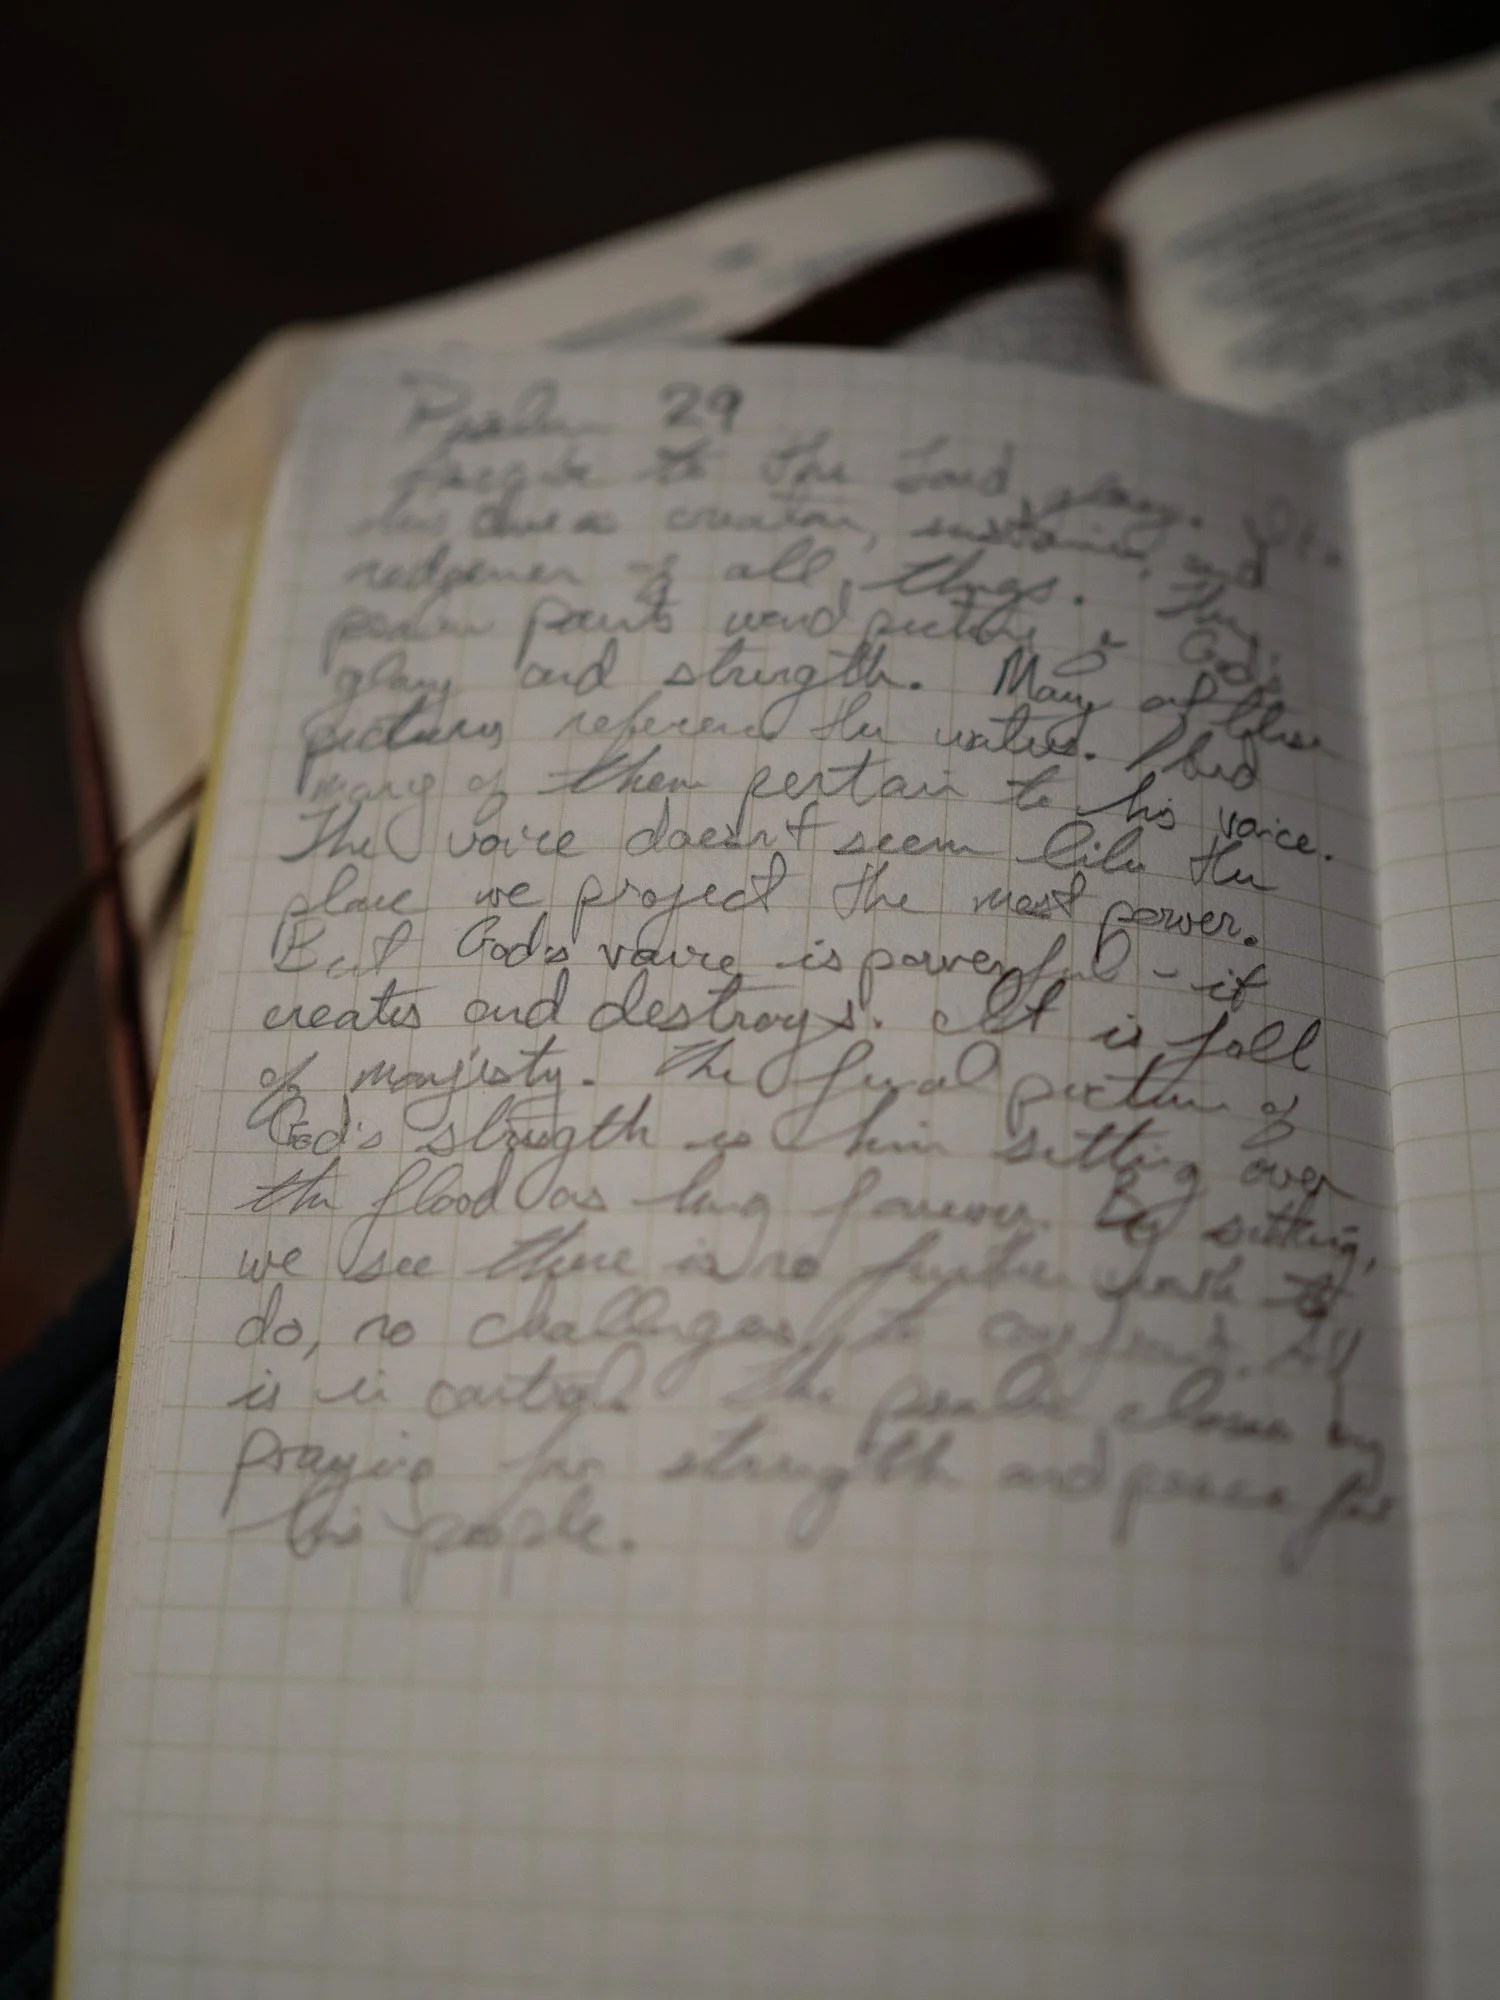 Psalm 29
Ascribe to the Lord, glory.
his due as creator, sustainer, and
redeemer of all things. This
psalm paints word pictures God's
glory and strength. Many of these
pictures reference the waters. And
many of them pertain to his voice.
The voice doesn't seem like the
place we project the most power.
But God's voice is powerful - it
creates and destroys. It is full
of majesty. The final picture of
God's strength is him sitting over
the flood as king forever. By sitting,
we see there is no further work to
do, no challenges to confront. All
is in control. The psalm closes by
praying for strength and peace for
his people.